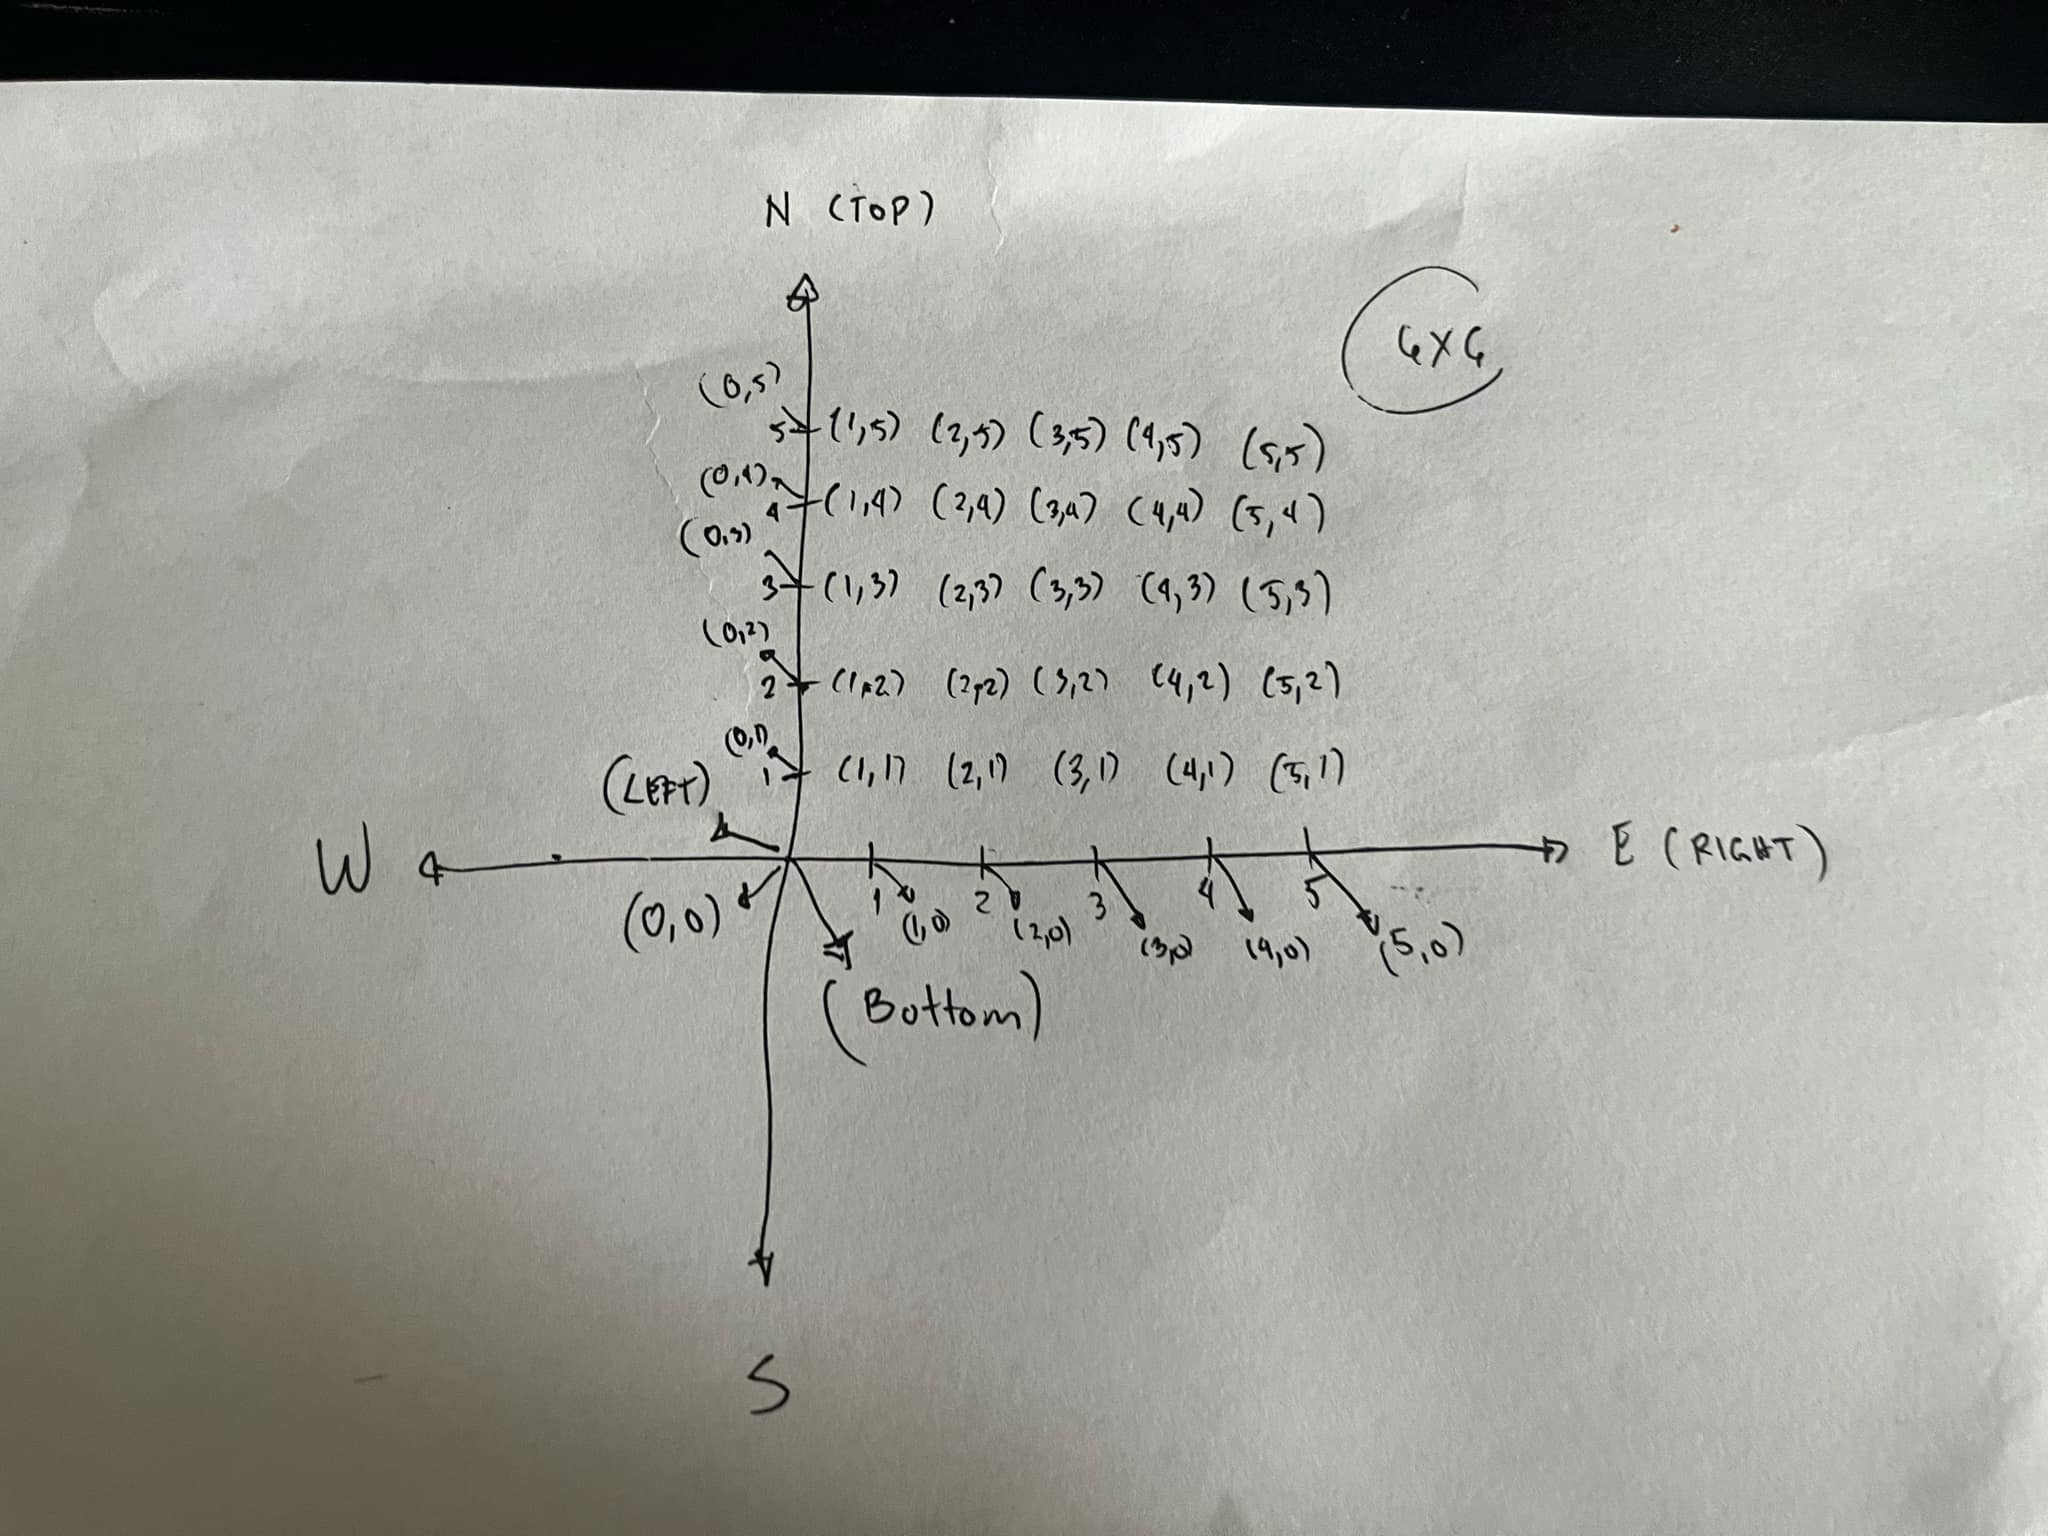 N (TOP)
6X6
(0,5)
5 (1,5) (2,5) (3,5) (4,5) (5,5)
(0,4)
4 (1,4) (2,4) (3,4) (4,4) (5,4)
(0,3)
3 (1,3) (2,3) (3,3) (4,3) (5,3)
(0,2)
2 (1,2) (2,2) (3,2) (4,2) (5,2)
(0,1)
1 (1,1) (2,1) (3,1) (4,1) (5,1)
(LEFT)
W E (RIGHT)
1 2 3 4 5
(0,0) (1,0) (2,0) (3,0) (4,0) (5,0)
(Bottom)
S